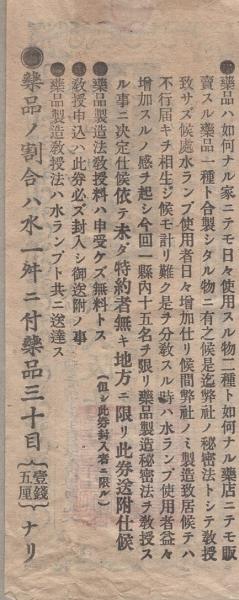 ●藥品ハ如何ナル家ニテモ日々使用スル物二種ト如何ナル藥店ニテモ販
賣スル藥品一種ト合製シタル物ニ有之候是迄弊社ノ秘密法トシテ教授
致サズ候處水ランプ使用者日々増加仕リ候間弊社ノミ製造致居候テハ
不行届キチ相生ジ候モ計リ難ク是ヲ分教スル時ハ水ランプ使用者益々
増加スルノ感ヲ起シ今回一縣內十五名ヲ限リ藥品製造秘密法ヲ教授ス
ル事ニ決定仕候依テ未タ特約者無キ地方ニ限リ此券送附仕候
●藥品製造法教授料ハ申受ケズ無料トス(但シ此券封入者ニ限ル)
●教授申込ハ此券必ズ封入シ御送附ノ事
●藥品製造教授法ハ水ランプト共ニ送達ス
●藥品ノ割合ハ水一舛ニ付藥品三十目(壹錢五厘)ナリ